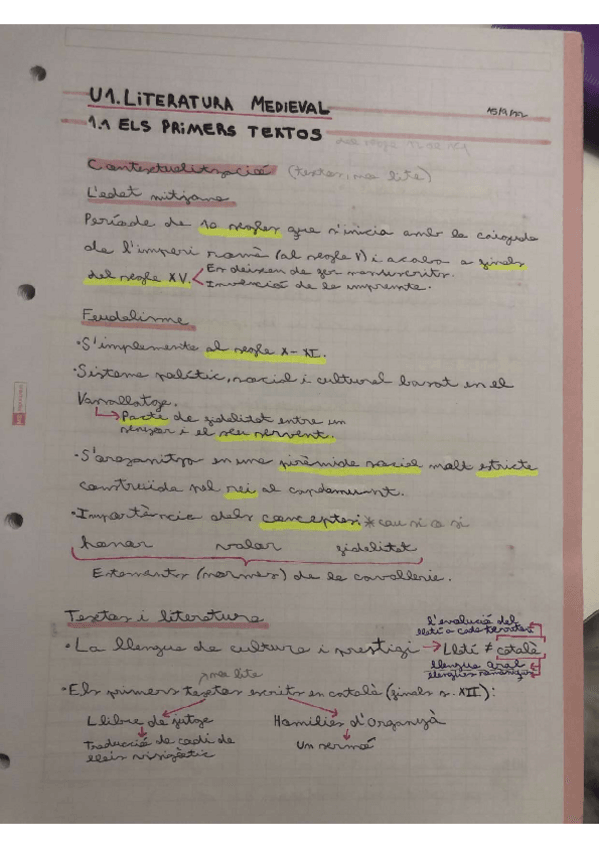 U1. LITERATURA MEDIEVAL
15/9/22
1.1 ELS PRIMERS TEXTOS
Contextualització (textos, no lite)
L'edat mitjana
Període de 10 segles que s'inicia amb la caiguda
de l'imperi romà (al segle V) i acaba a finals
del segle XV. Es deixen de fer manuscrits.
Invenció de la impremta.
Feudalisme
·S'implementa al segle X-XI.
·Sistema polític, social i cultural basat en el
Vassallatge.
Pacte de fidelitat entre un
senyor i el seu servent.
·S'organitza en una piràmide social molt estricte
construïda pel rei al capdamunt.
·Importància dels conceptes: * cau sí o sí
honor valor fidelitat
Estaments (normes) de la cavalleria.
Textos i literatura
l'evolució del
llatí a cada territori
·La llengua de cultura i prestigi → Llatí ≠ català
llengua oral
llengües romàniques
no lite
·Els primers textos escrits en català (finals s. XII):
Llibre de jutge Homilies d'Organyà
Traducció de codi de Un sermó
lleis visigòtic